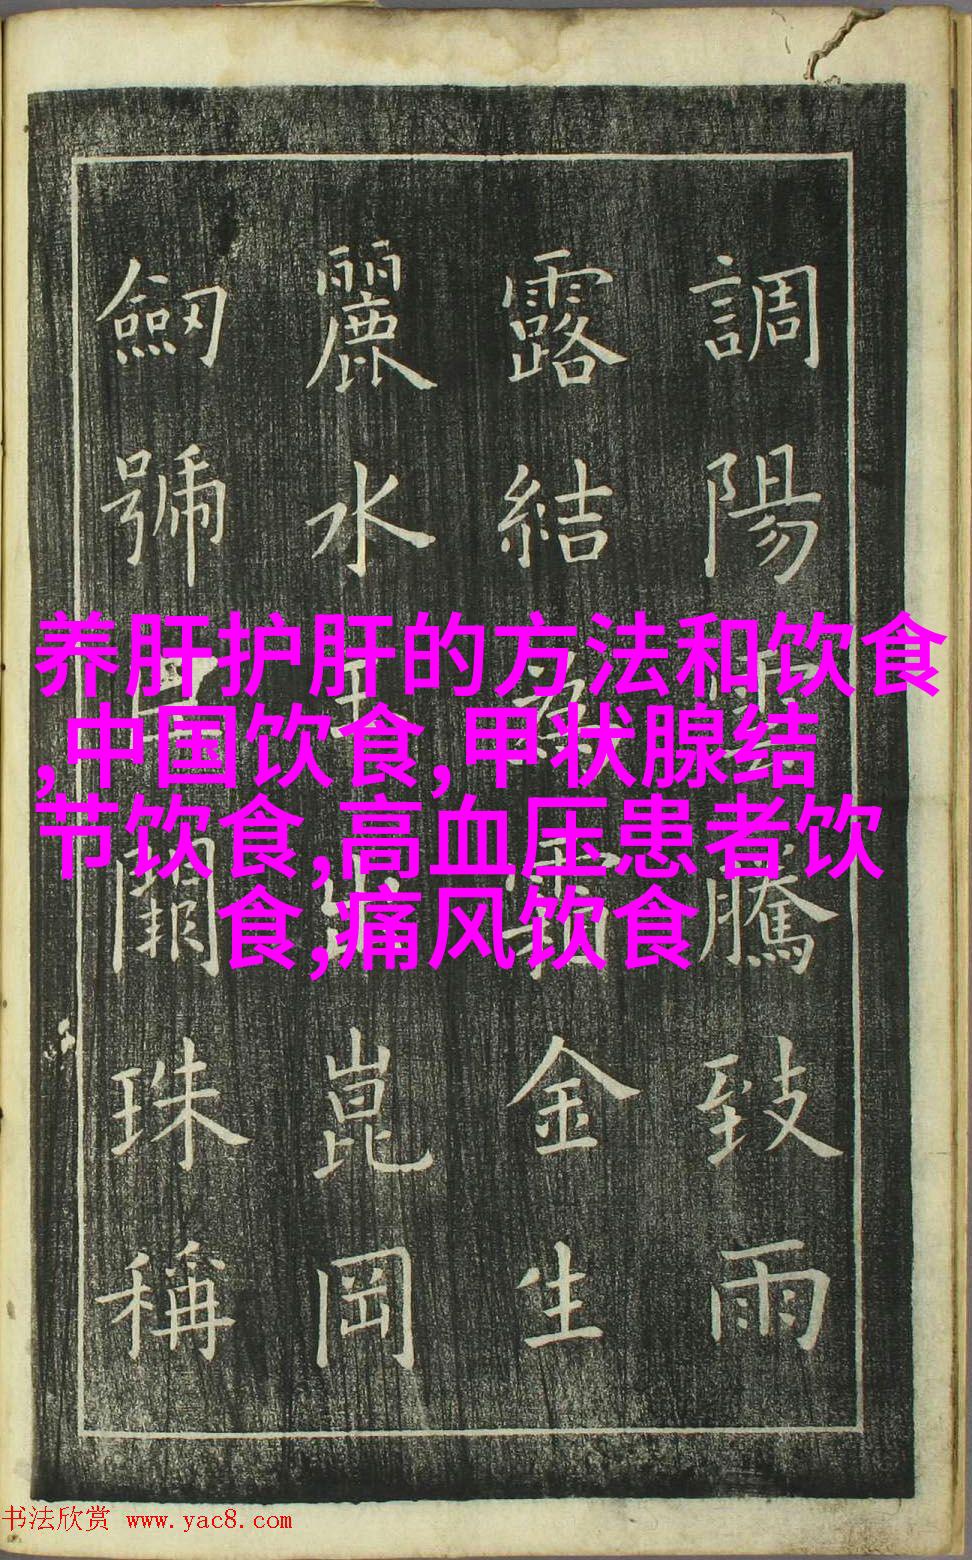 調陽雲騰致雨
露結為霜金生
麗水玉出崑岡
劒號巨闕珠稱
养肝护肝的方法和饮食
,中国饮食,甲状腺结
节饮食,高血压患者饮
食,痛风饮食
书法欣赏 www.yac8.com